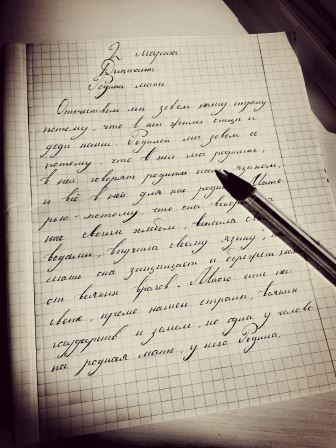 2 марта
Диктант
Родина мать
Отечеством мы зовем нашу страну
потому, что в ней жили отцы и
деды наши. Родиной мы зовем ее
потому, что в ней мы родились,
в ней говорят родным нам языком,
и всё в ней для нас родное. Мате-
рью - потому, что она вскорм
нас своим хлебом, вспоила сво
водами, выучила своему языку,
мать она защищает и бережет нас
от всяких врагов. Много есть на
свете, кроме нашей страны, всяких
государств и земель, но одна у челове
ка родная мать, у него Родина.